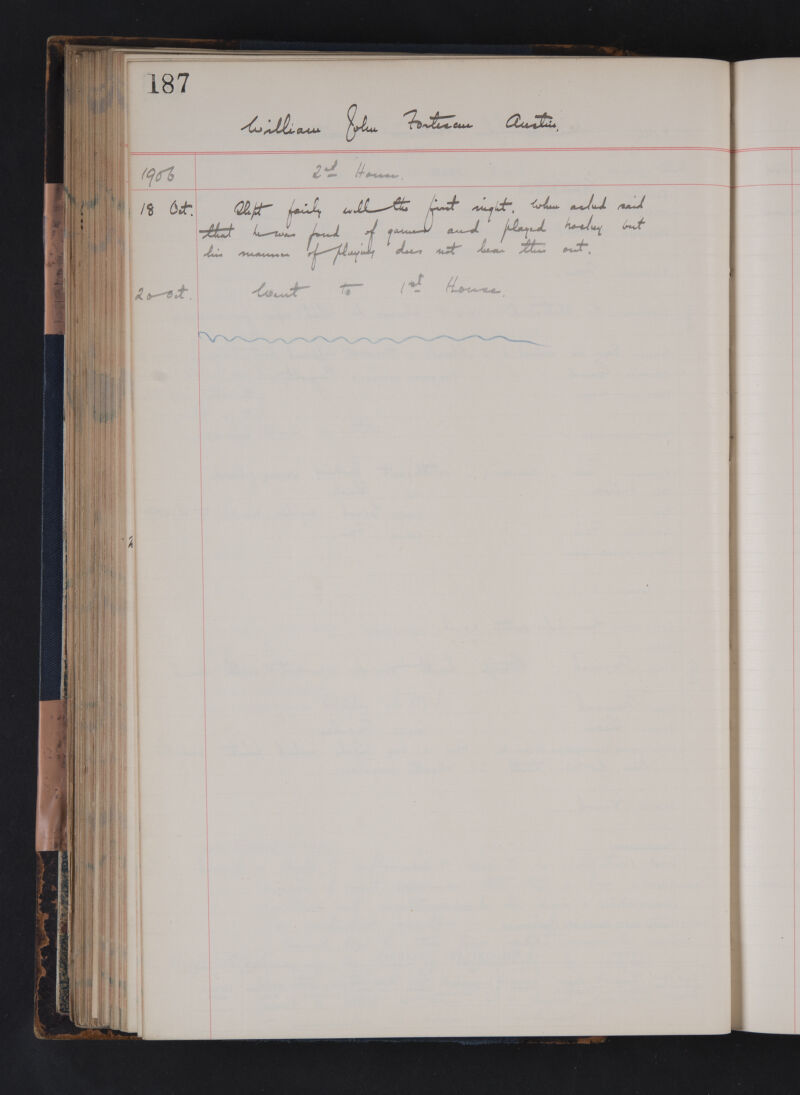 187
William John Fortescue Austin.
1906 2nd House.
18 Oct. Slept fairly well the first night. When asked said
that he was fond of games and played hockey but
his manner of playing does not bear this out.
20 Oct. Went to 1st House.